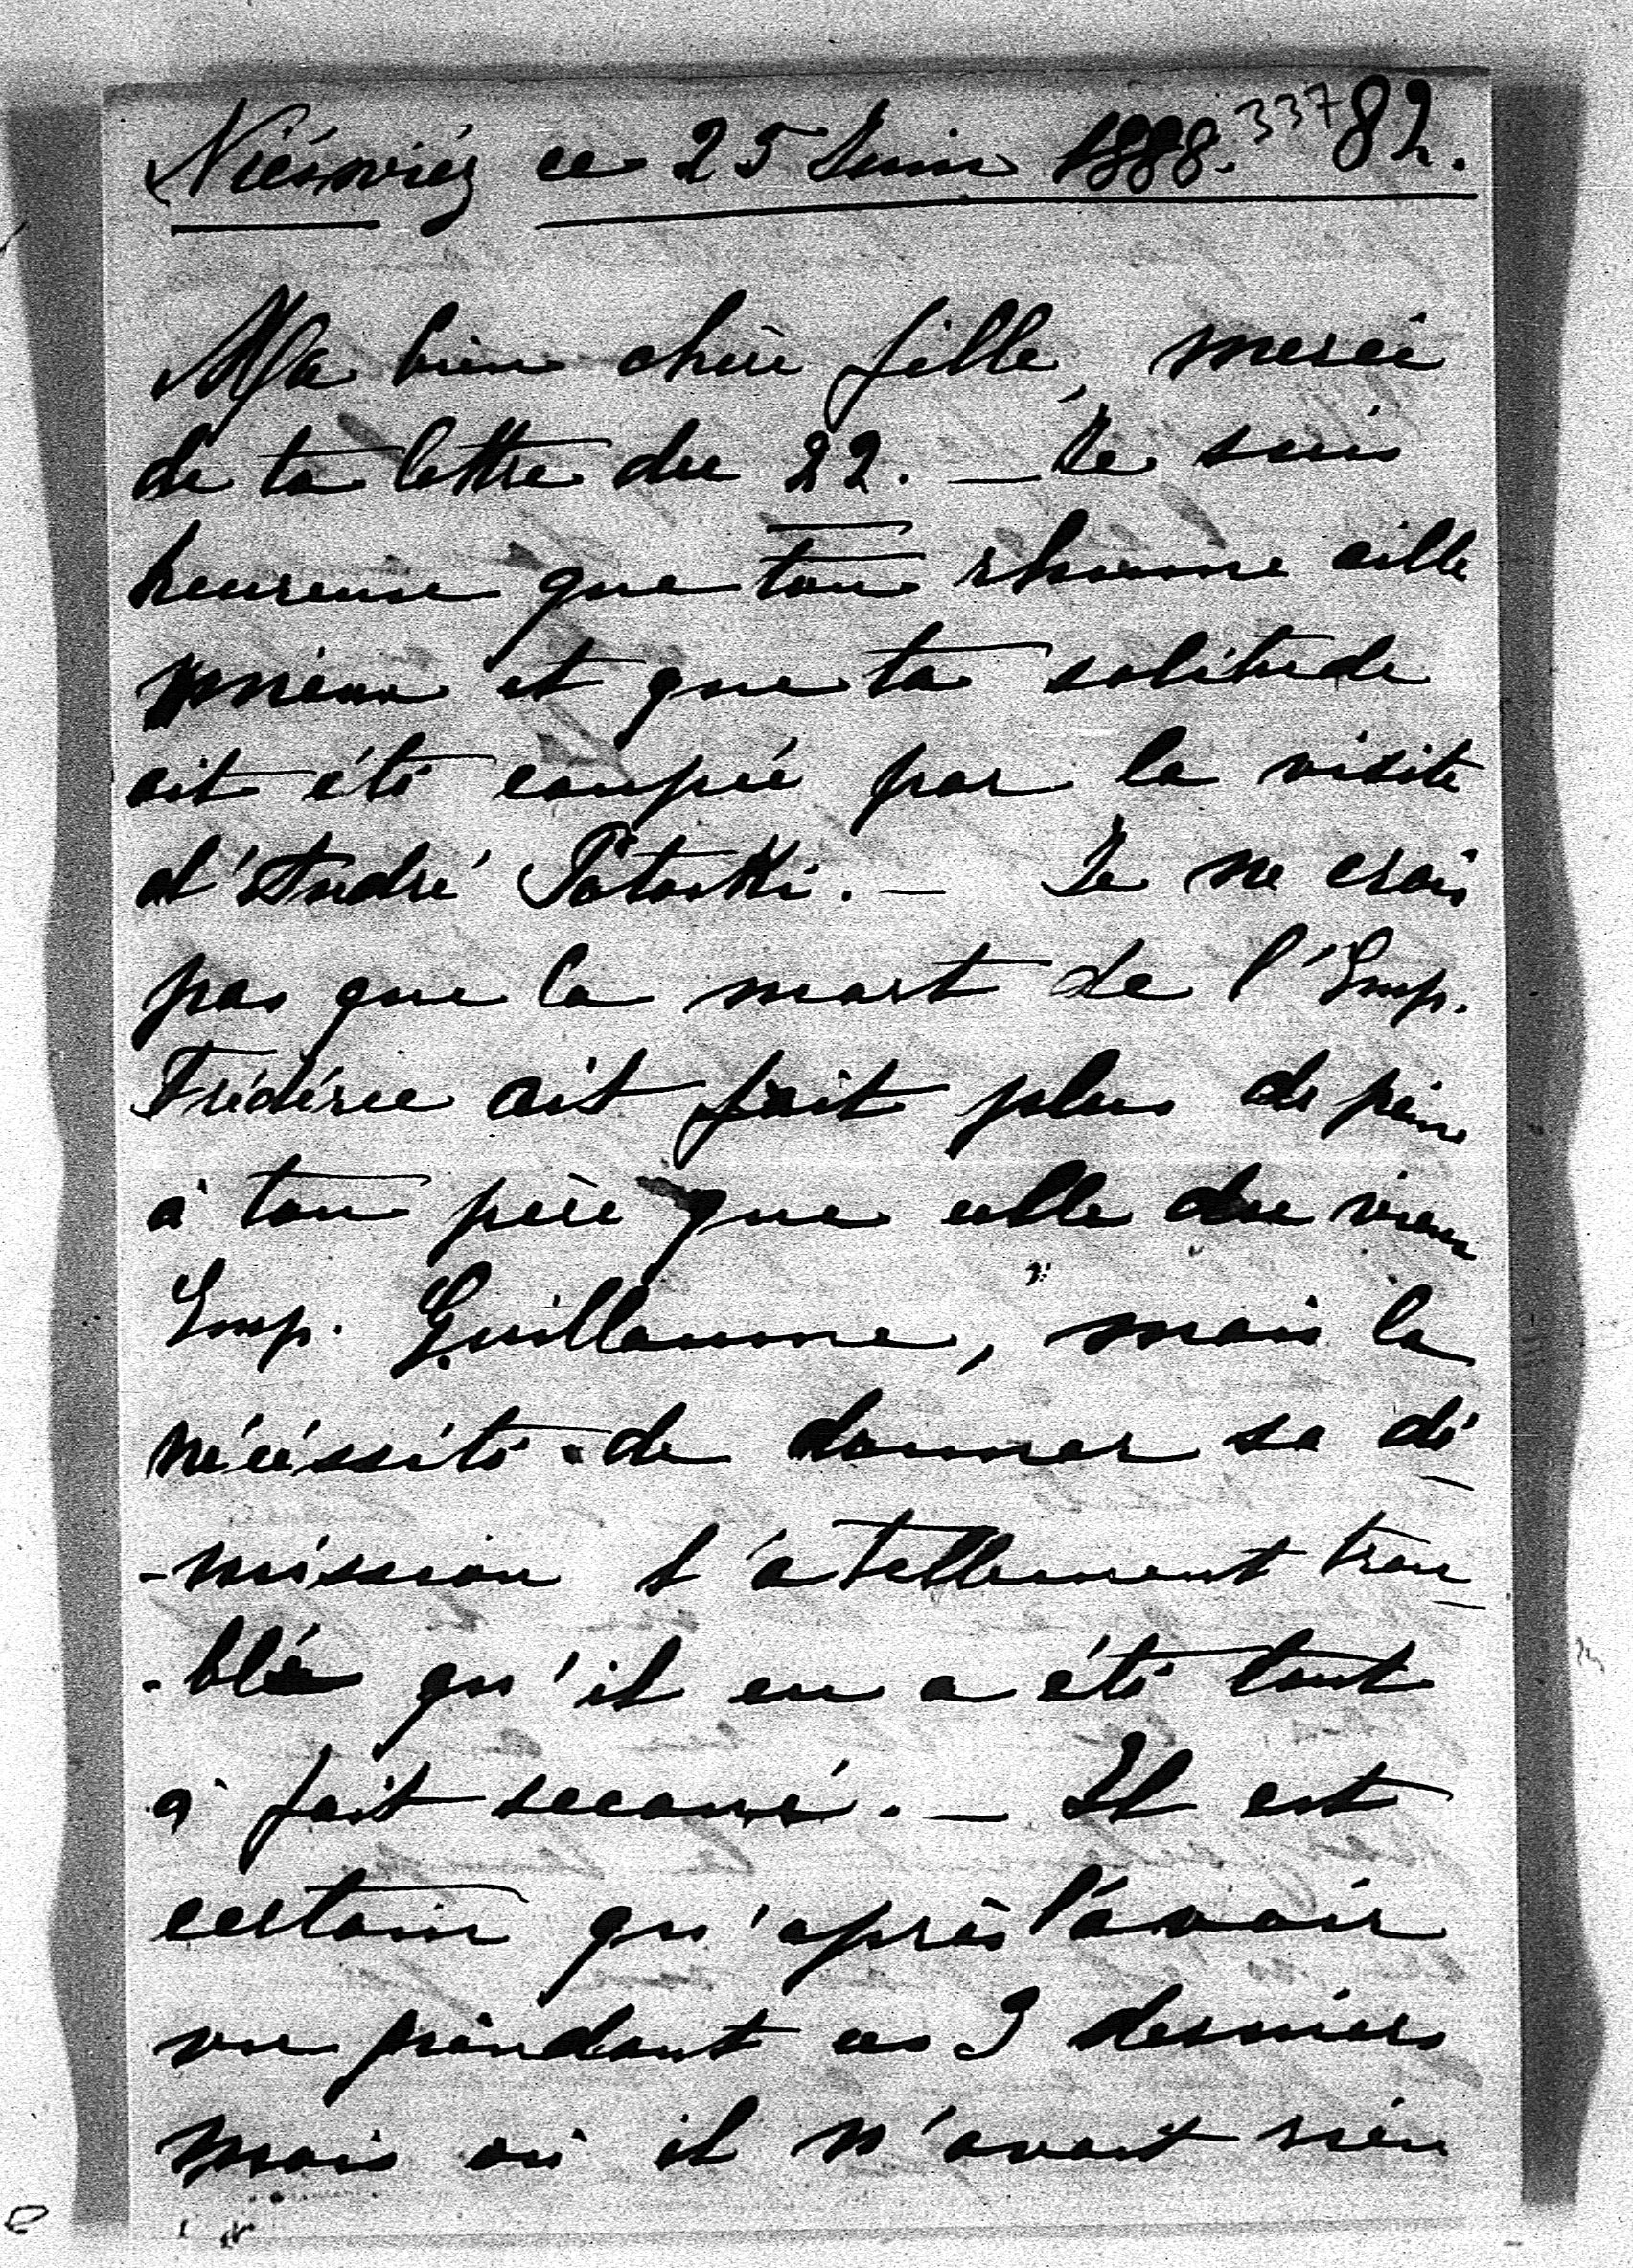 Niéswiéz ce 25 Juin 1888. 337 82.
Ma bien chère fille, merci
de ta lettre du 22. — Je suis
heureuse que ton rhume aille
mieux et que ta solitude
ait été coupée par la visite
d'André Potocki. — Je ne crois
pas que la mort de l'Emp.
Frédéric ait fait plus de peine
à ton père que celle du vieux
Emp. Guillaume, mais la
nécéssité de donner sa dé
-mission l'a tellement trou
-blé qu'il en a été tout
à fait secoué. — Il est
certain qu'après l'avoir
vu pendant ces 3 derniers
mois où il n'avait rien